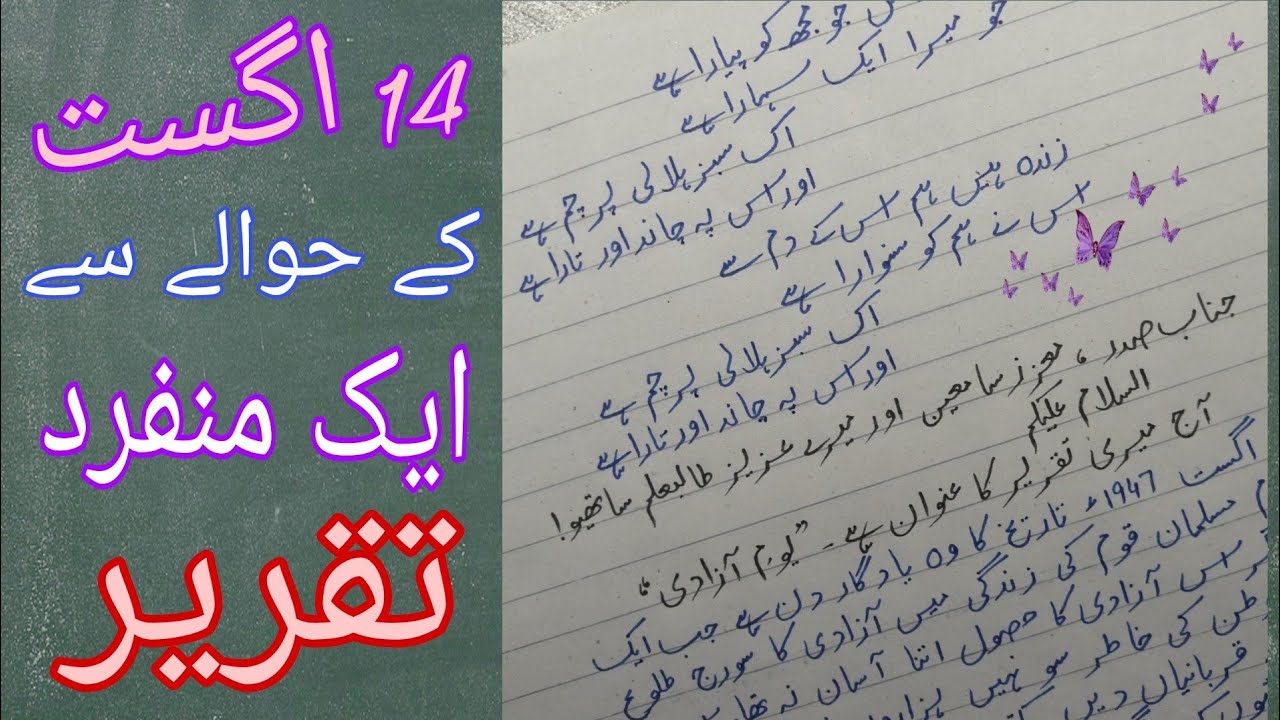 14 اگست
کے حوالے سے
ایک منفرد
تقریر
جو مجھ کو پیارا ہے
جو میرا ایک سہارا ہے
اک سبز ہلالی پرچم ہے
اور اس پہ چاند اور تارا ہے
زندہ ہیں ہم اس کے دم سے
اس نے ہم کو سنوارا ہے
اک سبز ہلالی پرچم ہے
اور اس پہ چاند اور تارا ہے
جناب صدر، معزز سامعین اور میرے عزیز طالبعلم ساتھیو!
السلام علیکم
آج میری تقریر کا عنوان ہے۔ "یوم آزادی"
اگست 1947ء تاریخ کا وہ یادگار دن ہے جب ایک
مسلمان قوم کی زندگی میں آزادی کا سورج طلوع
اس آزادی کا حصول اتنا آسان نہ تھا
کی خاطر سو نہیں ہزاروں
قربانیاں دیں